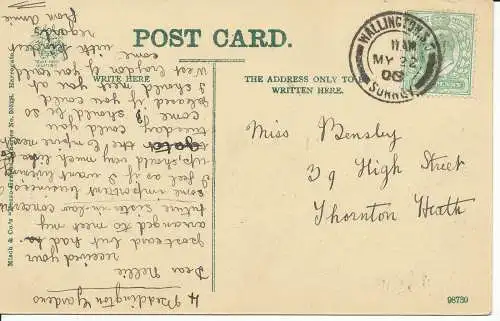 POST CARD.
WRITE HERE.
THE ADDRESS ONLY TO BE
WRITTEN HERE.
WALLINGTON S.O
11 AM
MY 22
06
SURREY
Miss Bensley
39 High Street
Thornton Heath
98730
Misch & Co's Series No.
4 Beddington Gardens
Dear Nellie
received your
postcard but had to
arranged to meet my
future sister-in-law concerning
some important business
I feel as if I want
up, should very much like
the Empire next
tuesday could you
come I should be so
pleased if you could
I should meet you at
West Croydon if you could
come
with kindest
regards
from Annie